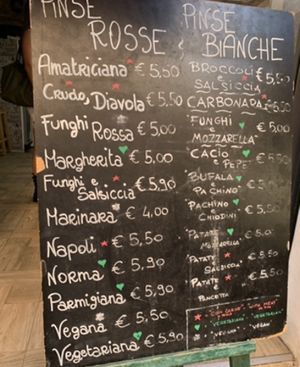 PINSE
ROSSE
Amatriciana € 5,50
Crudo, Diavola € 5,50
Funghi Rossa € 5,00
Margherita € 5,00
Funghi e
Salsiccia € 5,90
Marinara € 4,00
Napoli € 5,50
Norma € 5,90
Parmigiana € 5,90
Vegana € 5,50
Vegetariana € 5,90
PINSE
BIANCHE
BROCCOLI
E € 5,50
SALSICCIA
CARBONARA 5,50
FUNGHI
E € 5,00
MOZZARELLA
CACIO
E PEPE € 5,
BUFALA
PACHINO € 5,50
PACHINO
CHIODINI € 5,
PATATE
MOZZARELLA € 5,
PATATE
SALSICCIA € 5,
PATATE
PANCETTA
"CON CARNE" "WITH MEAT"
"VEGETARIANA" "VEGETARIAN"
"VEGANA" "VEGAN"